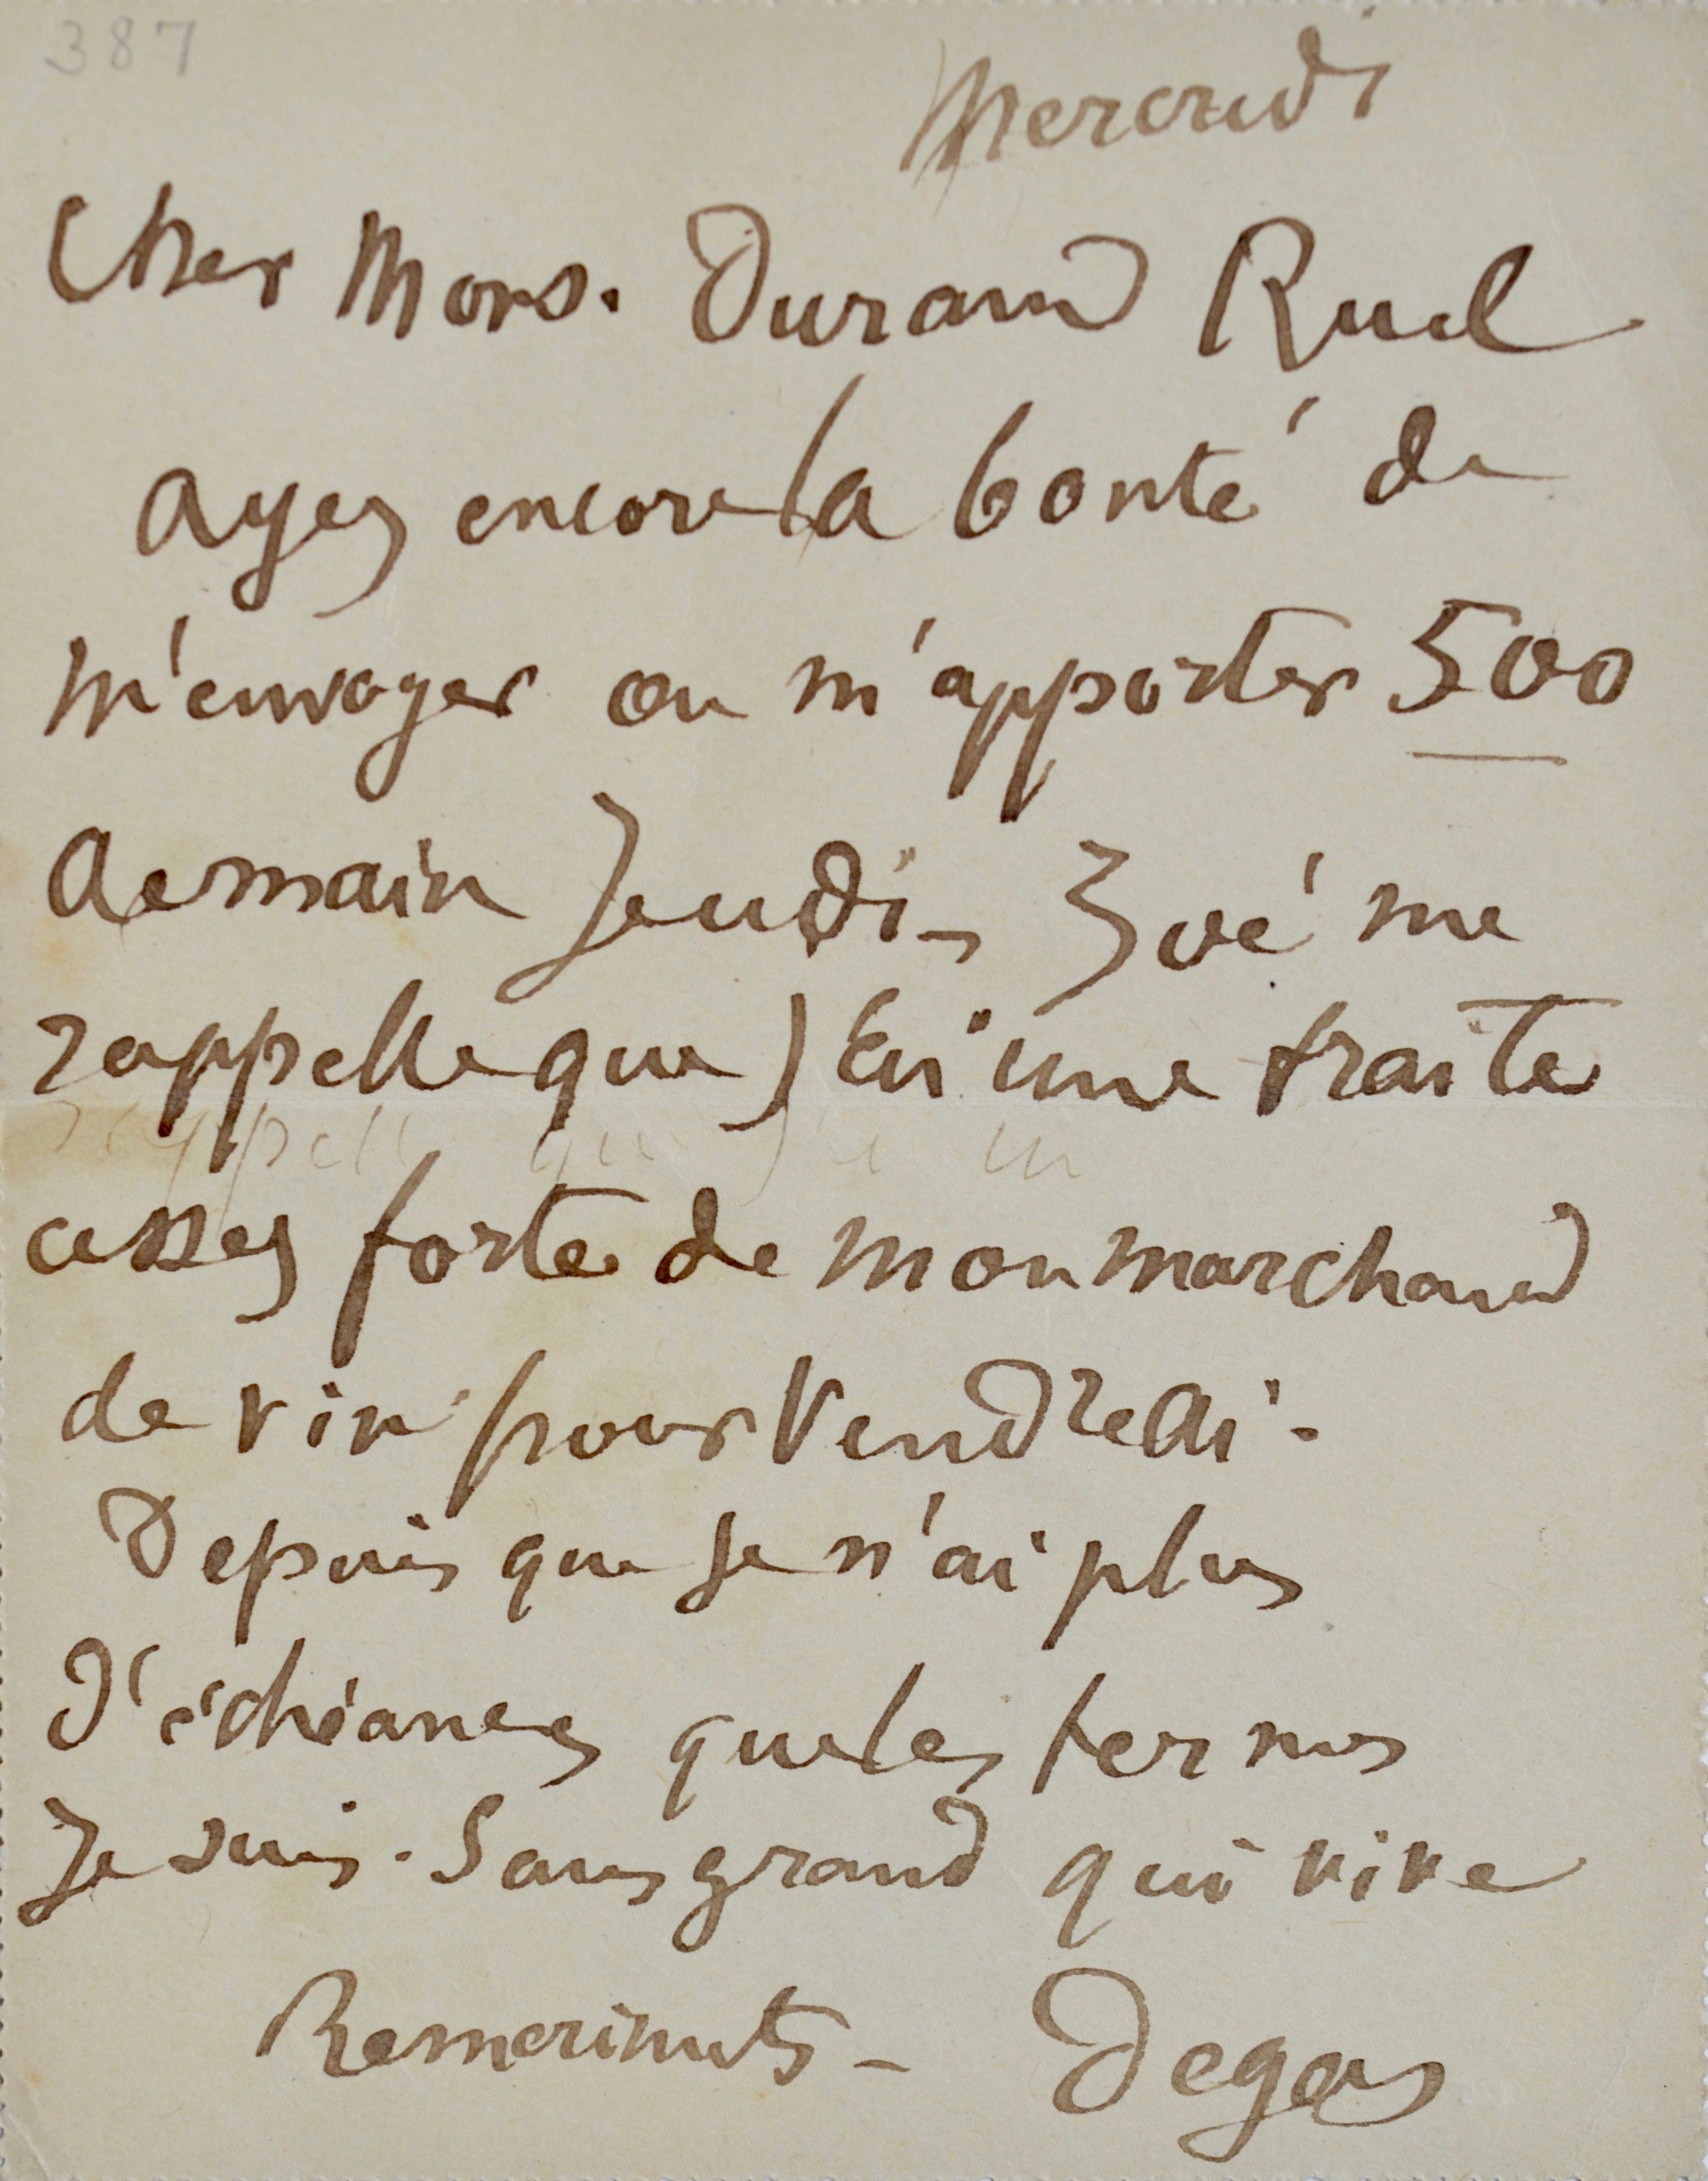 387
Mercredi
Cher Mons. Durand Ruel
ayez encore la bonté de
m'envoyer ou m'apporter 500
demain Jeudi – Zoé me
rappelle que j'ai une traite
assez forte de mon marchand
de vin pour Vendredi –
Depuis que je n'ai plus
d'échéances que les termes
je suis sans grand qui vive
Remerciments – Degas